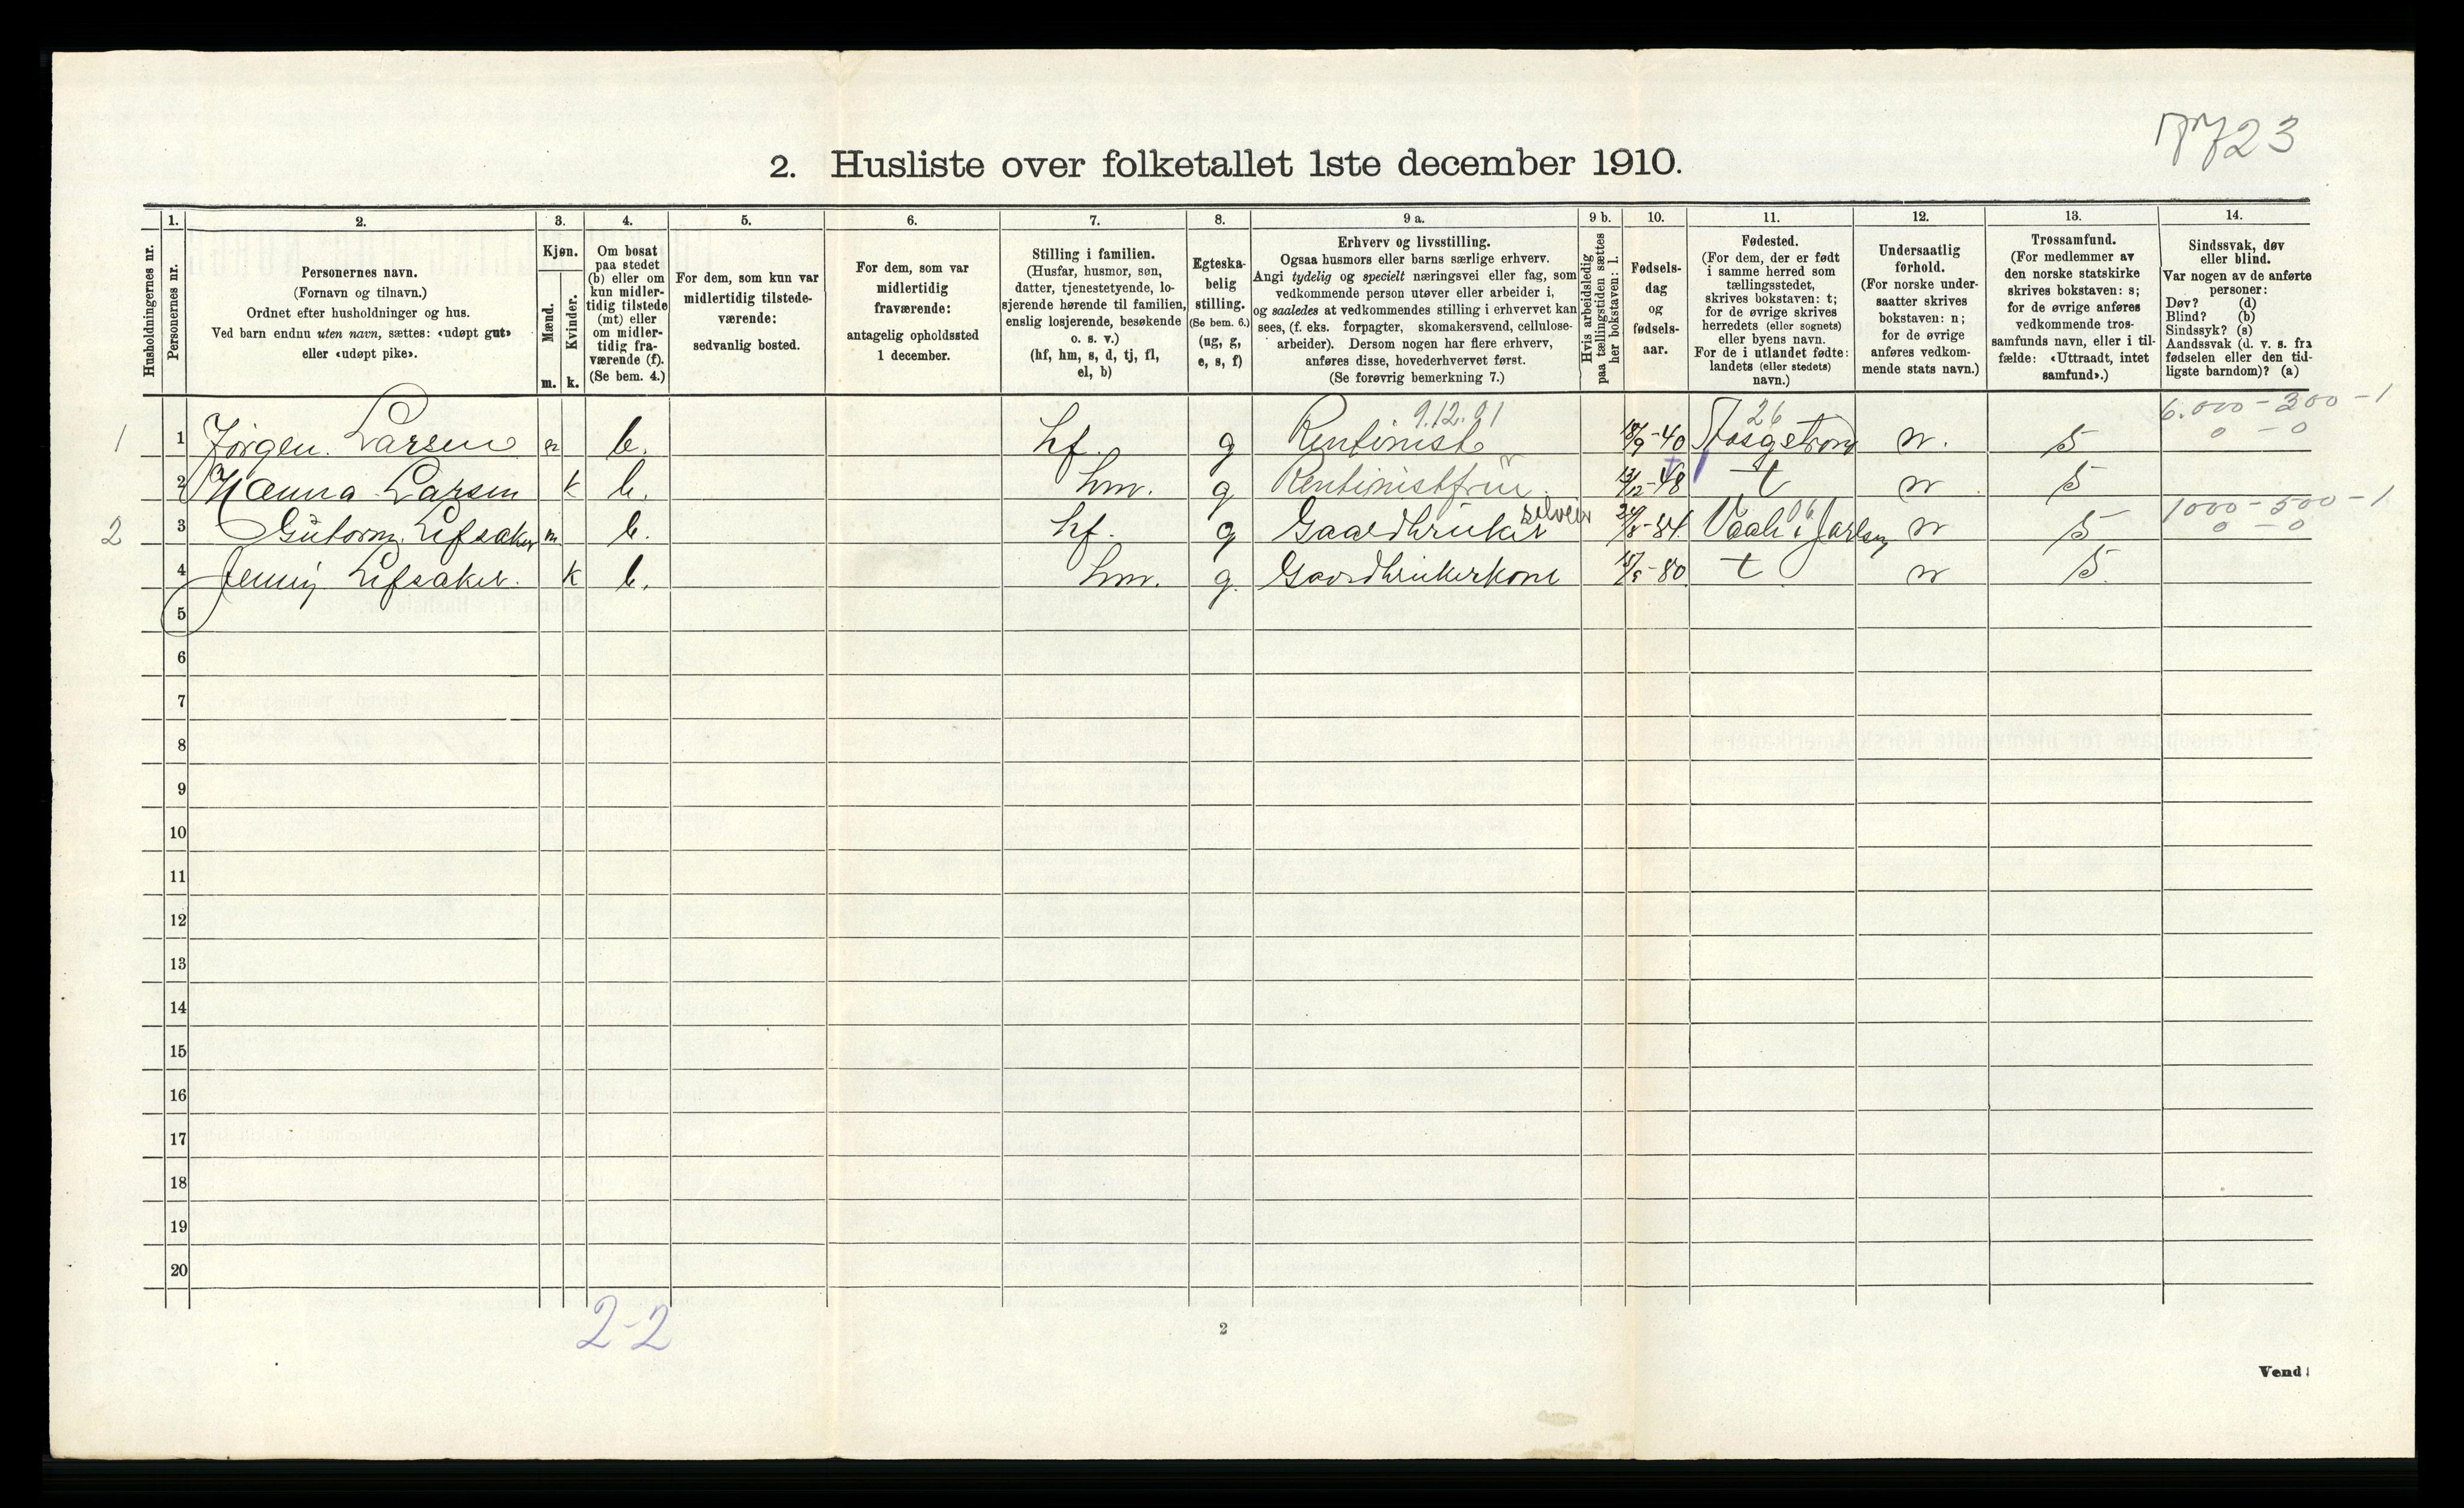 7723
2. Husliste over folketallet 1ste december 1910.
Husholdningernes nr.
1. Personernes nr.
2. Personernes navn. (Fornavn og tilnavn.) Ordnet efter husholdninger og hus. Ved barn endnu uten navn, sættes: «udøpt gut» eller «udøpt pike».
3. Kjøn. Mænd. m. Kvinder. k.
4. Om bosat paa stedet (b) eller om kun midlertidig tilstede (mt) eller om midlertidig fraværende (f). (Se bem. 4.)
5. For dem, som kun var midlertidig tilstedeværende: sedvanlig bosted.
6. For dem, som var midlertidig fraværende: antagelig opholdssted 1 december.
7. Stilling i familien. (Husfar, husmor, søn, datter, tjenestetyende, losjerende hørende til familien, enslig losjerende, besøkende o. s. v.) (hf, hm, s, d, tj, fl, el, b)
8. Egteskabelig stilling. (Se bem. 6.) (ug, g, e, s, f)
9 a. Erhverv og livsstilling. Ogsaa husmors eller barns særlige erhverv. Angi tydelig og specielt næringsvei eller fag, som vedkommende person utøver eller arbeider i, og saaledes at vedkommendes stilling i erhvervet kan sees, (f. eks. forpagter, skomakersvend, cellulosearbeider). Dersom nogen har flere erhverv, anføres disse, hovederhvervet først. (Se forøvrig bemerkning 7.)
9 b. Hvis arbeidsledig paa tællingstiden sættes her bokstaven: l.
10. Fødselsdag og fødselsaar.
11. Fødested. (For dem, der er født i samme herred som tællingsstedet, skrives bokstaven: t; for de øvrige skrives herredets (eller sognets) eller byens navn. For de i utlandet fødte: landets (eller stedets) navn.)
12. Undersaatlig forhold. (For norske undersaatter skrives bokstaven: n; for de øvrige anføres vedkommende stats navn.)
13. Trossamfund. (For medlemmer av den norske statskirke skrives bokstaven: s; for de øvrige anføres vedkommende trossamfunds navn, eller i tilfælde: «Uttraadt, intet samfund».)
14. Sindssvak, døv eller blind. Var nogen av de anførte personer: Døv? (d) Blind? (b) Sindssyk? (s) Aandssvak (d. v. s. fra fødselen eller den tidligste barndom)? (a)
9.12.01 26 6.000-300-1
1 1 Jørgen Larsen m b. hf. g Rentinist 18/9-40 n. s 0-0
2 Hanna Larsen k b. hm. g Rentinistfrue 13/12-48 t n s
selveier 06 1000-500-1
2 3 Gutorm Lefsaker m b. hf. g Gaardbruker 24/8-84 Vaale i Jarlsbg n s 0-0
4 Jenny Lefsaker k b. hm. g. Gaardbrukerkone 15/5-80 t n s.
5
6
7
8
9
10
11
12
13
14
15
16
17
18
19
20
2-2
2
Vend!